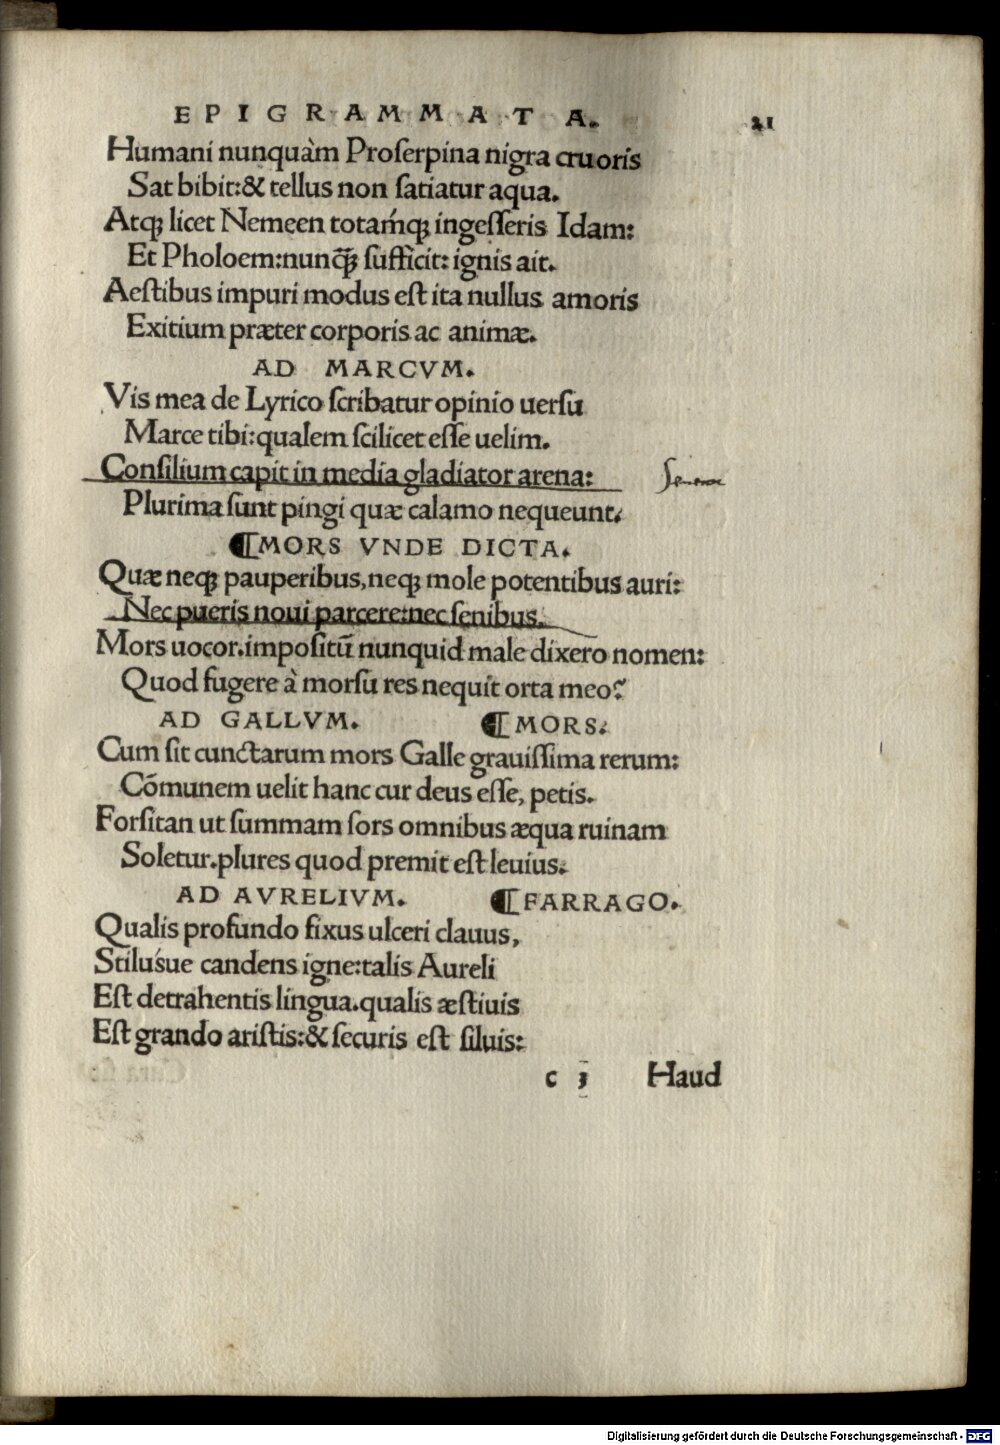 EPIGRAMMATA. 21
Humani nunquàm Proſerpina nigra cruoris
Sat bibit:& tellus non ſatiatur aqua.
Atqꝫ licet Nemeen totaḿqꝫ ingeſſeris Idam:
Et Pholoem:nunq̃ꝫ ſufficit: ignis ait.
Aeſtibus impuri modus eſt ita nullus amoris
Exitium præter corporis ac animæ.
AD MARCVM.
Vis mea de Lyrico ſcribatur opinio uerſu
Marce tibi:qualem ſcilicet eſſe uelim.
Conſilium capit in media gladiator arena:
Plurima ſunt pingi quæ calamo nequeunt.
¶MORS VNDE DICTA.
Quæ neqꝫ pauperibus,neqꝫ mole potentibus auri:
Nec pueris noui parcere:nec ſenibus.
Mors uocor.impoſitū nunquid male dixero nomen:
Quod fugere à morſu res nequit orta meo?
AD GALLVM. ¶MORS.
Cum ſit cunctarum mors Galle grauiſſima rerum:
Cōmunem uelit hanc cur deus eſſe, petis.
Forſitan ut ſummam ſors omnibus æqua ruinam
Soletur.plures quod premit eſt leuius.
AD AVRELIVM. ¶FARRAGO.
Qualis profundo fixus ulceri clauus,
Stiluśue candens igne:talis Aureli
Eſt detrahentis lingua.qualis æſtiuis
Eſt grando ariſtis:& ſecuris eſt ſiluis:
c 3 Haud
Digitalisierung gefördert durch die Deutsche Forschungsgemeinschaft - DFG